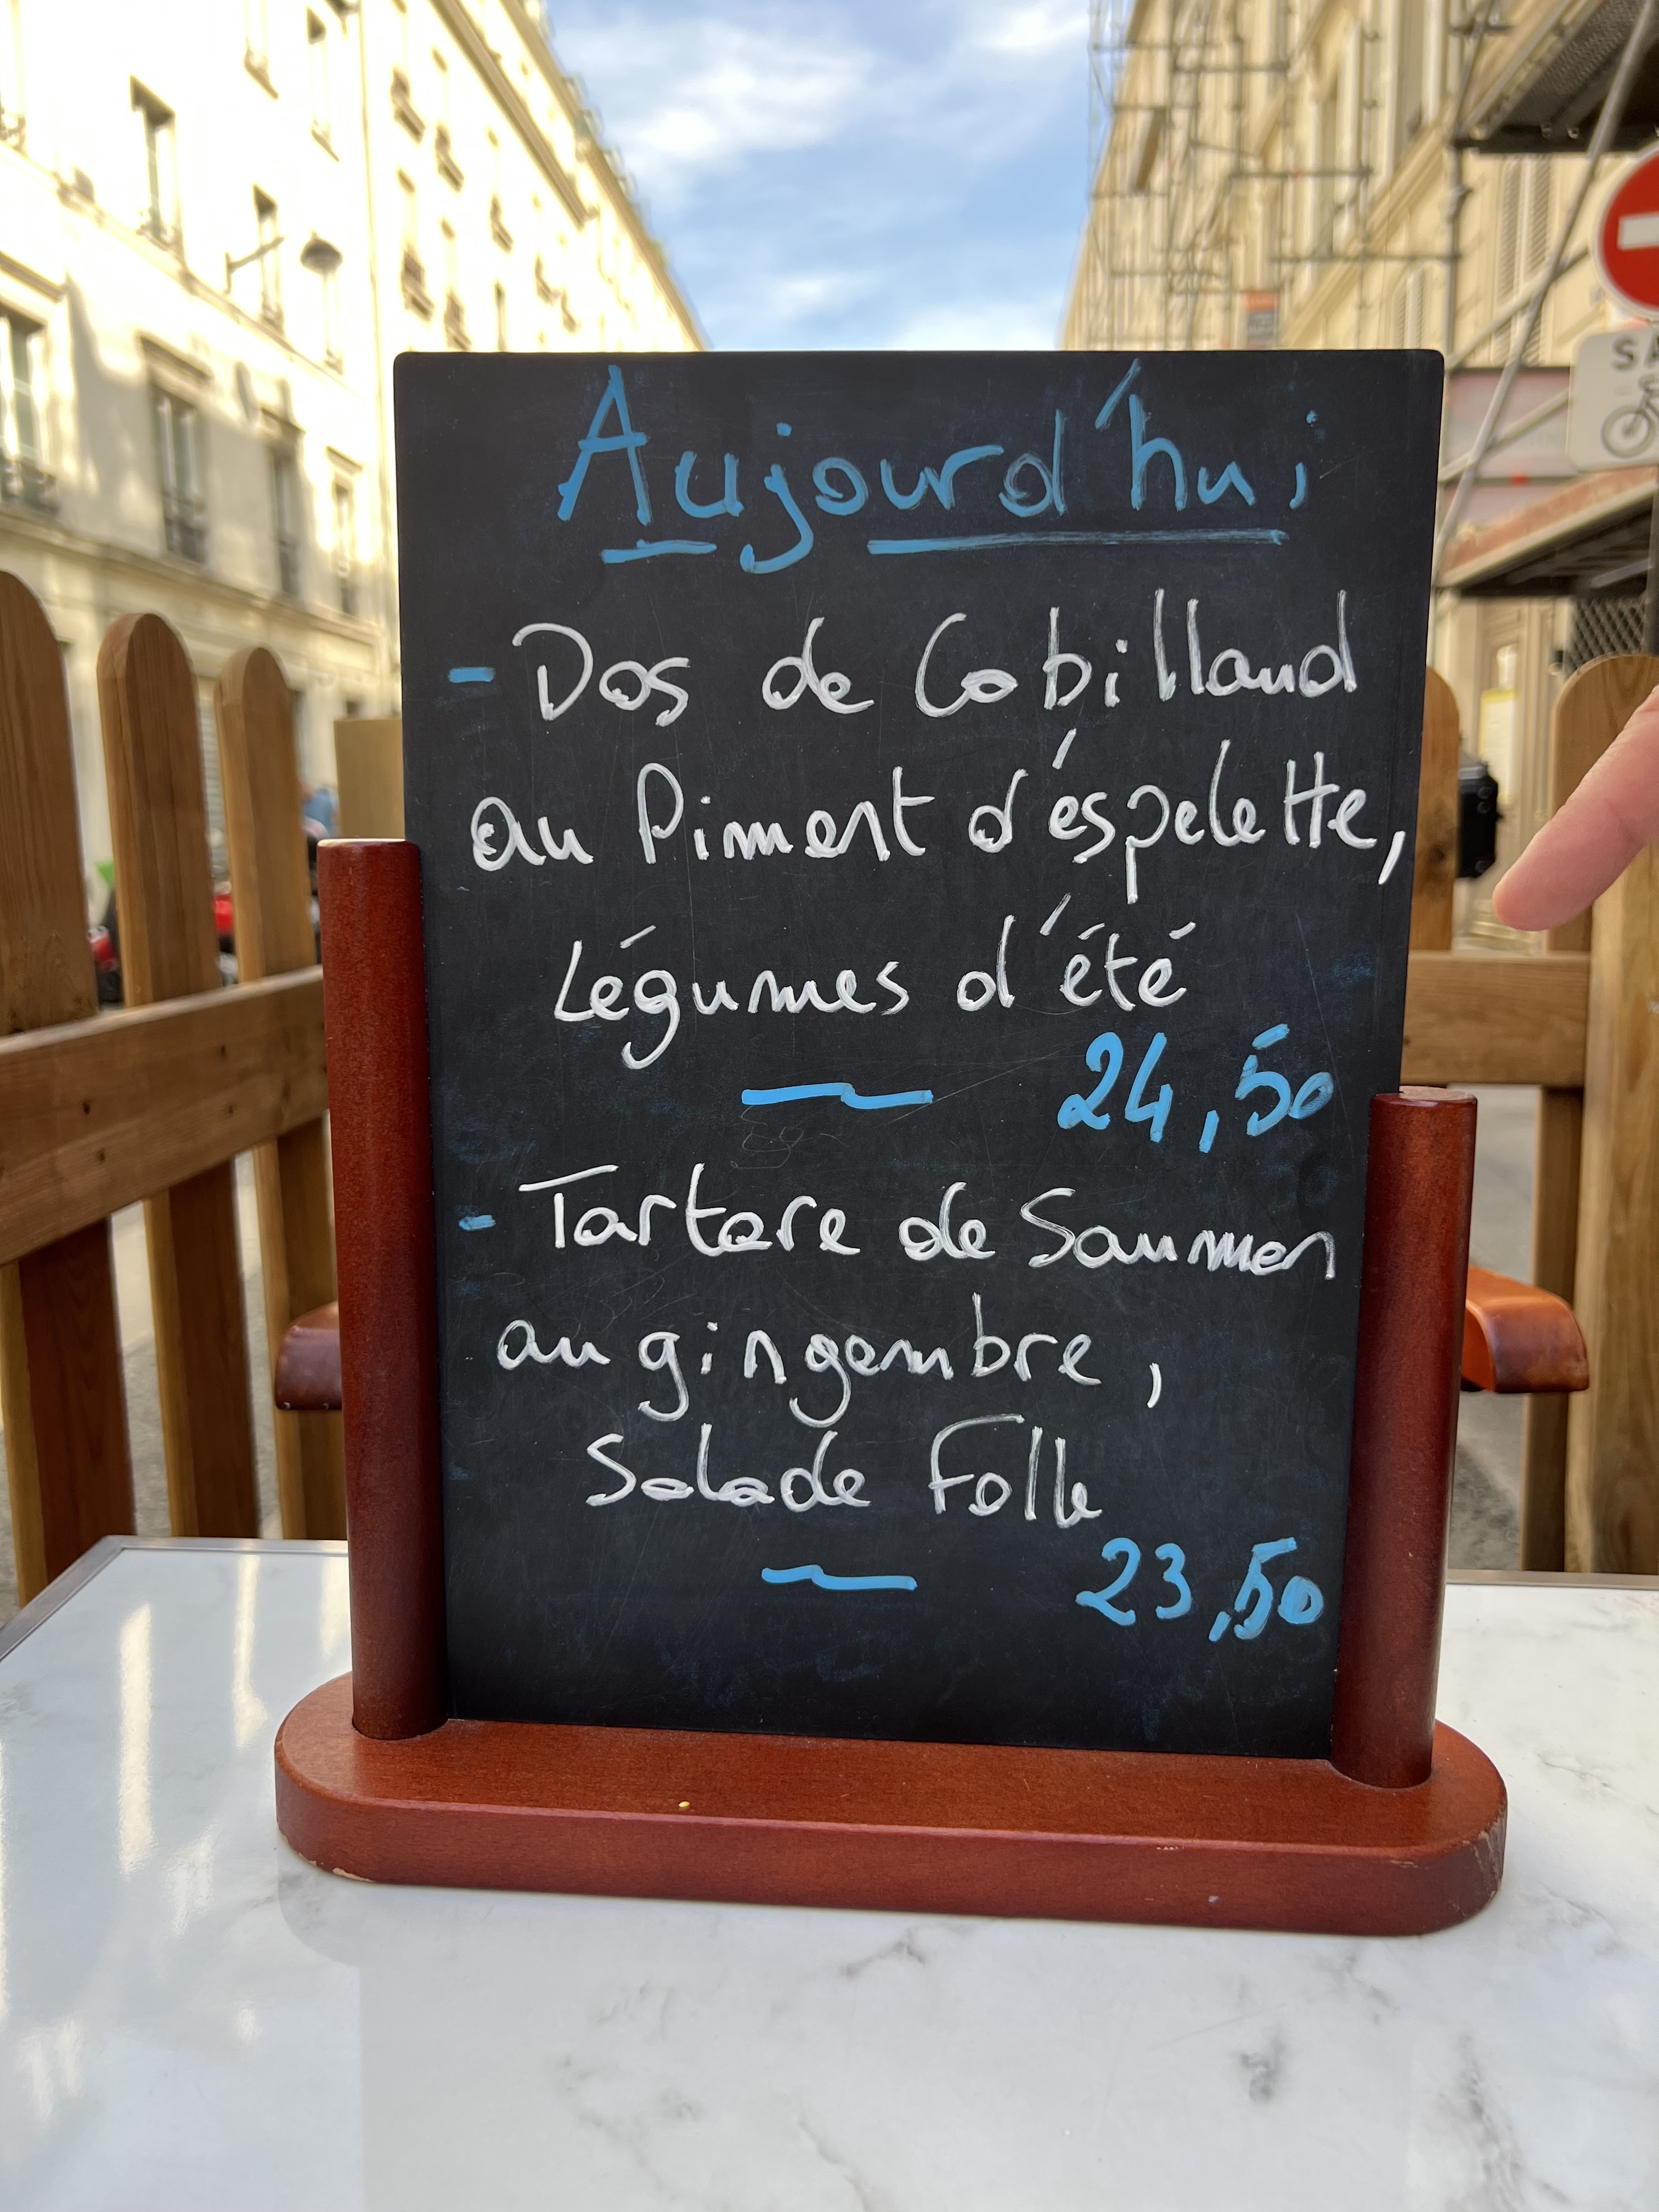 Aujourd'hui
- Dos de Cabillaud
au Piment d'éspelette,
Légumes d'été
24,50
- Tartare de Saumon
au gingembre,
Salade Folle
23,50
SA